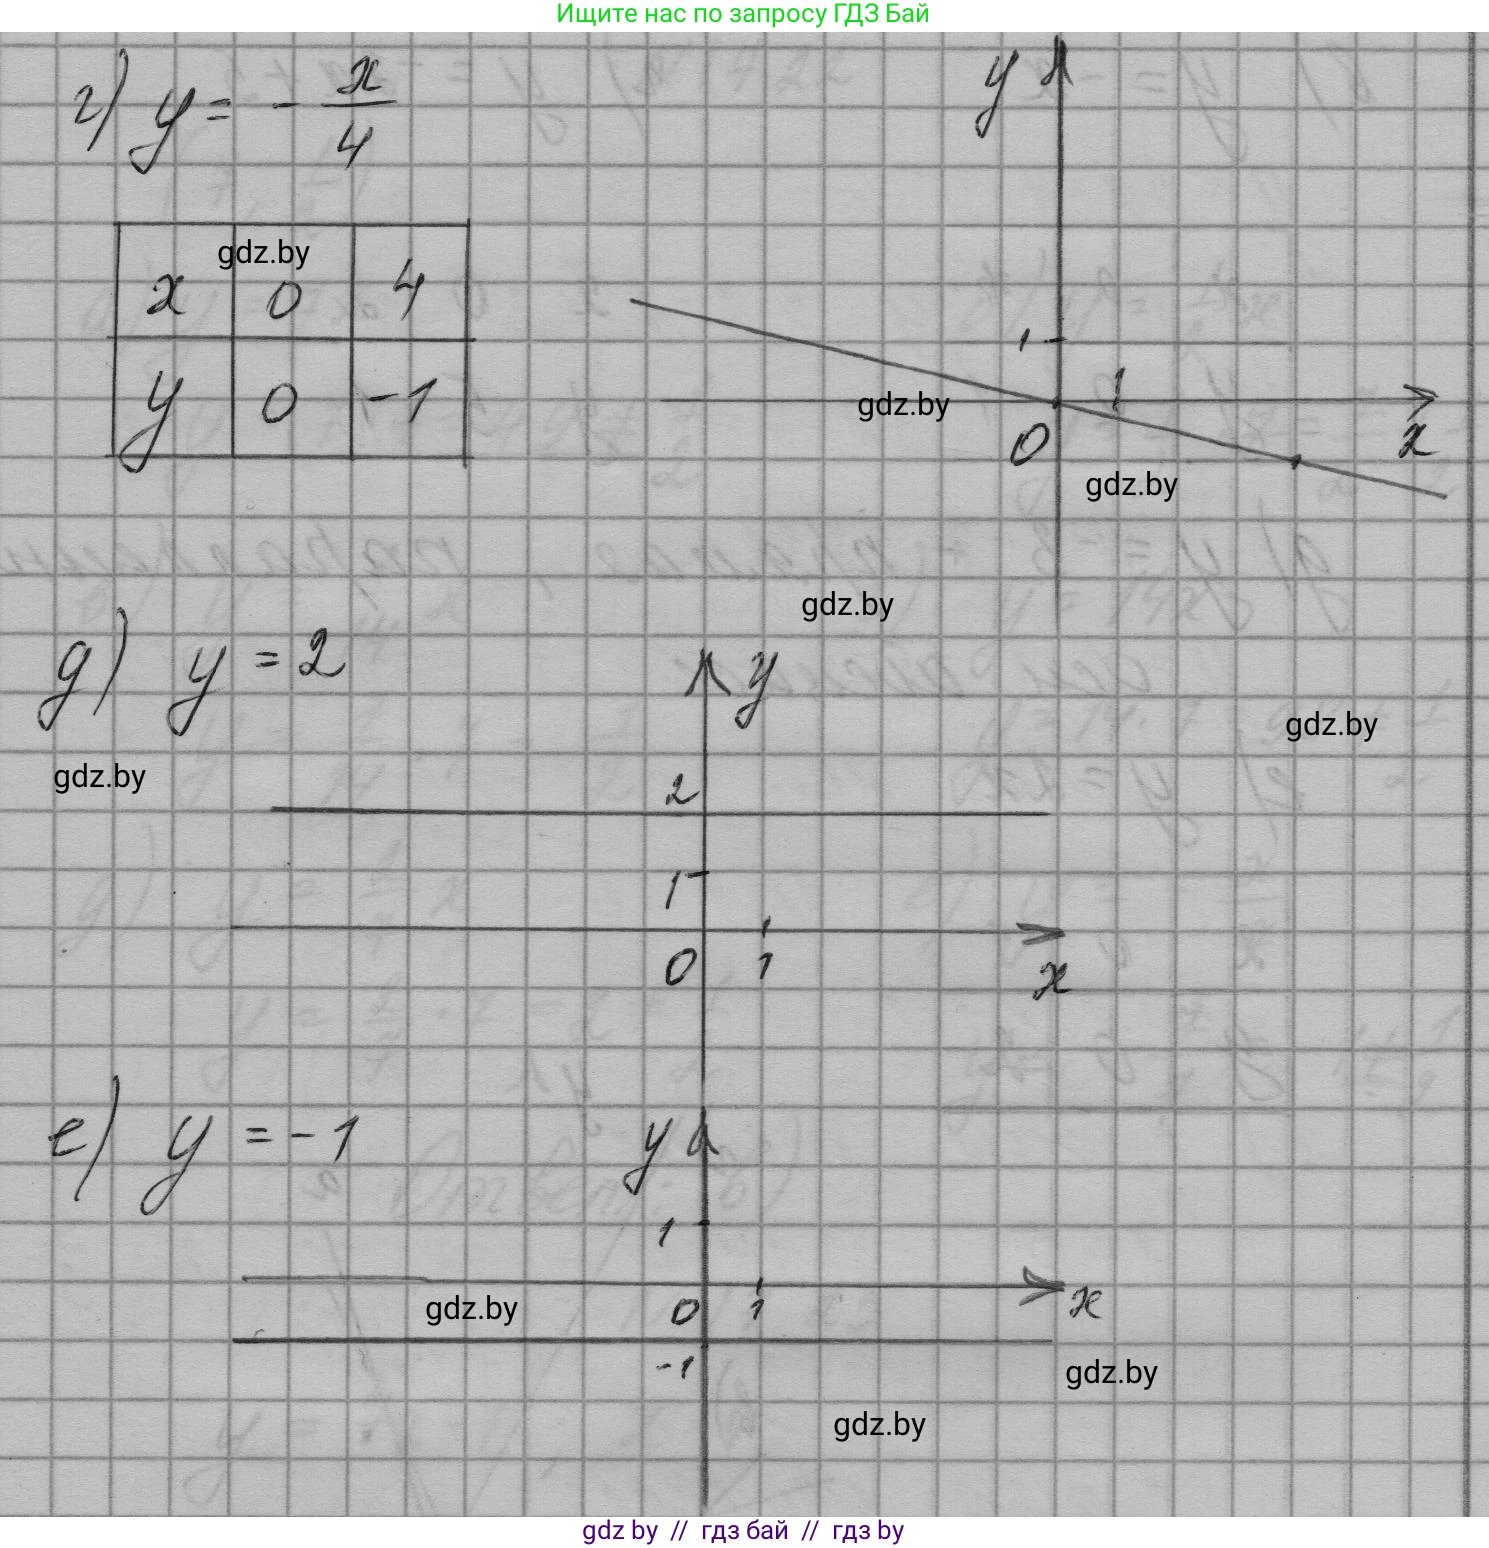 Ищите нас по запросу ГДЗ Бай
г) y = - x/4
y
gdz.by
x 0 4
y 0 -1
1
1
gdz.by
0
x
gdz.by
gdz.by
д) y = 2
y
gdz.by
gdz.by
2
1
0 1
x
е) y = -1
y
1
gdz.by
0 1
x
-1
gdz.by
gdz.by
gdz by // гдз бай // гдз by